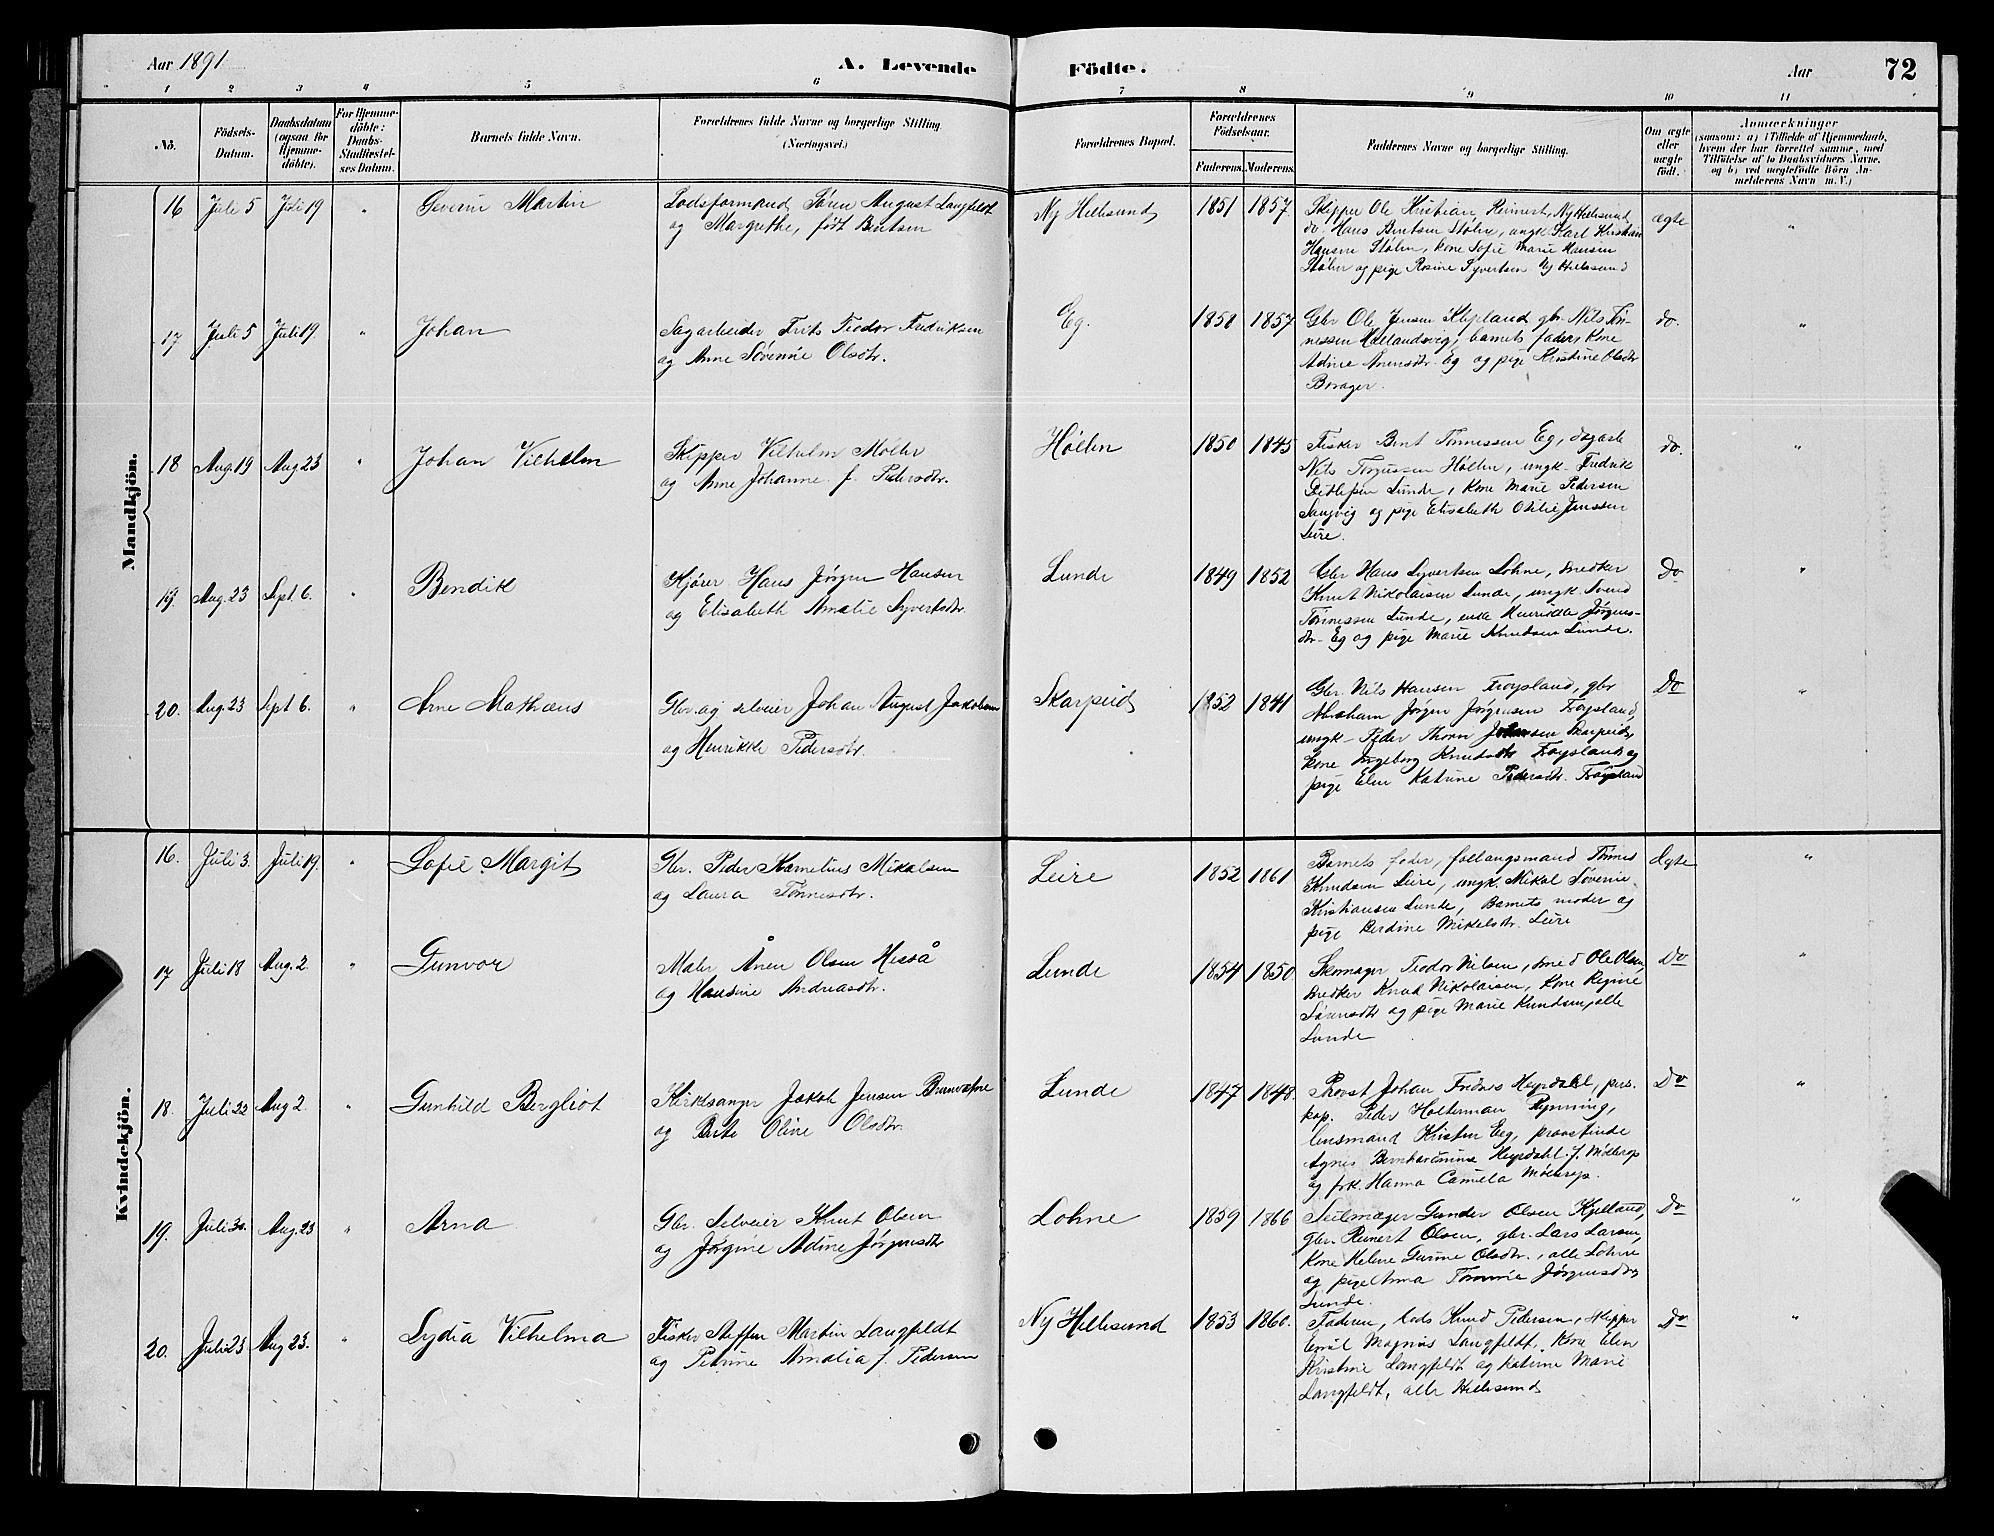 Aar 1891
A. Levende
Födte.
Aar
72
1 2 3 4 5 6 7 8 9 10 11
No.
Födsels-
Datum.
Daabsdatum
(ogsaa for
Hjemme-
döbte).
For Hjemme-
döbte:
Daabs-
Stadfæstel-
ses Datum.
Barnets fulde Navn.
Forældrenes fulde Navne og borgerlige Stilling
(Næringsvei.)
Forældrenes Bopæl.
Forældrenes
Födselsaar.
Faderens. Moderens.
Faddernes Navne og borgerlige Stilling.
Om ægte
eller
uægte
födt.
Anmærkninger
(saasom: a) i Tilfælde af Hjemmedaab,
hvem der har forrettet samme, med
Tilföielse af to Daabsvidners Navne,
og b) ved uægtefödte Börn An-
melderens Navn m. V.)
Mandkjön.
16 Juli 5 Juli 19 " Severin Martin
Lodsformand Søren August Langfeldt
og Margrethe, født Bentsen
Ny Hellesund 1851 1857
Skipper Ole Kristian Reinert, Ny Hellesund,
do. Hans Bentsen Stølen, ungk. Karl Kristian
Hansen Stølen, kone Sofie Marie Hansen
Stølen og pige Rosine Syvertsen Ny Hellesund
ægte "
17 Juli 5 Juli 19. " Johan
Sagarbeider Frits Teodor Fredriksen
og Anne Severine Olsdtr.
Eg. 1858 1857
Gbr Ole Jensen Klepland, gbr. Nils Tøn-
nessen Høllandsvig, barnets fader, kone
Adine Arensdtr. Eg og pige Kristine Olsdtr
Borager.
do. "
18 Aug. 19 Aug 23 " Johan Vilhelm
Skipper Vilhelm Møller
og Anne Johanne f. Pedersdtr.
Høllen 1850 1845
Fisker Bent Tønnessen Eg, dagarb.
Nils Torgussen Høllen, ungk. Fredrik
Detlefsen Lunde, kone Marie Pedersen
Langvig og pige Elisabeth Otilie Jenssen
Leire.
do. "
19. Aug. 23 Sept 6. " Bendik
Kjører Hans Jørgen Hansen
og Elisabeth Amalie Syvertsdtr.
Lunde 1849 1852
Gbr Hans Syvertsen Lohne, snedker
Knut Nikolaisen Lunde, ungk. Svend
Tønnessen Lunde, enke Henrikke Jørgens-
dtr. Eg og pige Marie Knudsen Lunde.
Do "
20. Aug. 23 Sept 6. " Arne Mathæus
Gbr. og selveier Johan August Jakobsen
og Henrikke Pedersdtr.
Skarpeid 1852 1841
Gbr. Nils Hansen Frøysland, gbr
Abraham Jørgen Jørgensen Frøysland,
ungk. Peder Thorn Johansen Skarpeid,
kone Ingeborg Knudsdtr Frøysland og
pige Elen Katrine Pedersdtr. Frøysland
Do "
Kvindekjön.
16. Juli 3. Juli 19. " Sofie Margit
Gbr. Peder Kornelius Mikalsen
og Laura Tønnesdtr.
Leire 1852 1861
Barnets fader, føllangsmand Tønnes
Knudsen Leire, ungk. Mikal Severin
Kristiansen Lunde, Barnets moder og
pige Berdine Mikelsdtr. Leire
Ægte "
17 Juli 18 Aug. 2. " Gunvor
Maler Ånen Olsen Hesså
og Hansine Andreasdtr.
Lunde 1854 1850
Skomager Teodor Nilsen, smed Ole Olsen,
snedker Knud Nikolaisen, kone Regine
Sørensdtr og pige Marie Kundsen, alle
Lunde
Do "
18. Juli 22 Aug 2. " Gunhild Bergliot
Kirkesanger Jakob Jensen Brunvatne
og Berte Oline Olsdtr.
Lunde 1847 1848.
Provst Johan Fredrik Heyrdahl, pers.
kap. Peder Holterman Rynning,
lensmand Kristen Eeg, provstinde
Agnes Bernhardmine Heyrdahl f. Møllerop
og frk. Hanna Camilla Møllerop.
Do "
19. Juli 30. Aug. 23 " Arna
Gbr. Selveier Knut Olsen
og Jørgine Adine Jørgensdtr
Lohne 1859 1866
Seilmager Gunder Olsen Kjelland,
gbr. Reinert Olsen, gbr. Lars Larsen,
kone Helene Gurine Olsdtr., alle Lohne
og pige Anna Tomine Jørgensdtr
Lunde.
Do "
20. Juli 23 Aug 23. " Lydia Vilhelma
Fisker Steffen Martin Langfeldt
og Petrine Amalia f. Pedersen
Ny Hellesund 1853 1860.
Faderen, lods Knud Pedersen, skipper
Emil Magnus Langfeldt, kone Elen
Kristine Langfeldt og Katrine Marie
Langfeldt, alle Hellesund
Do "